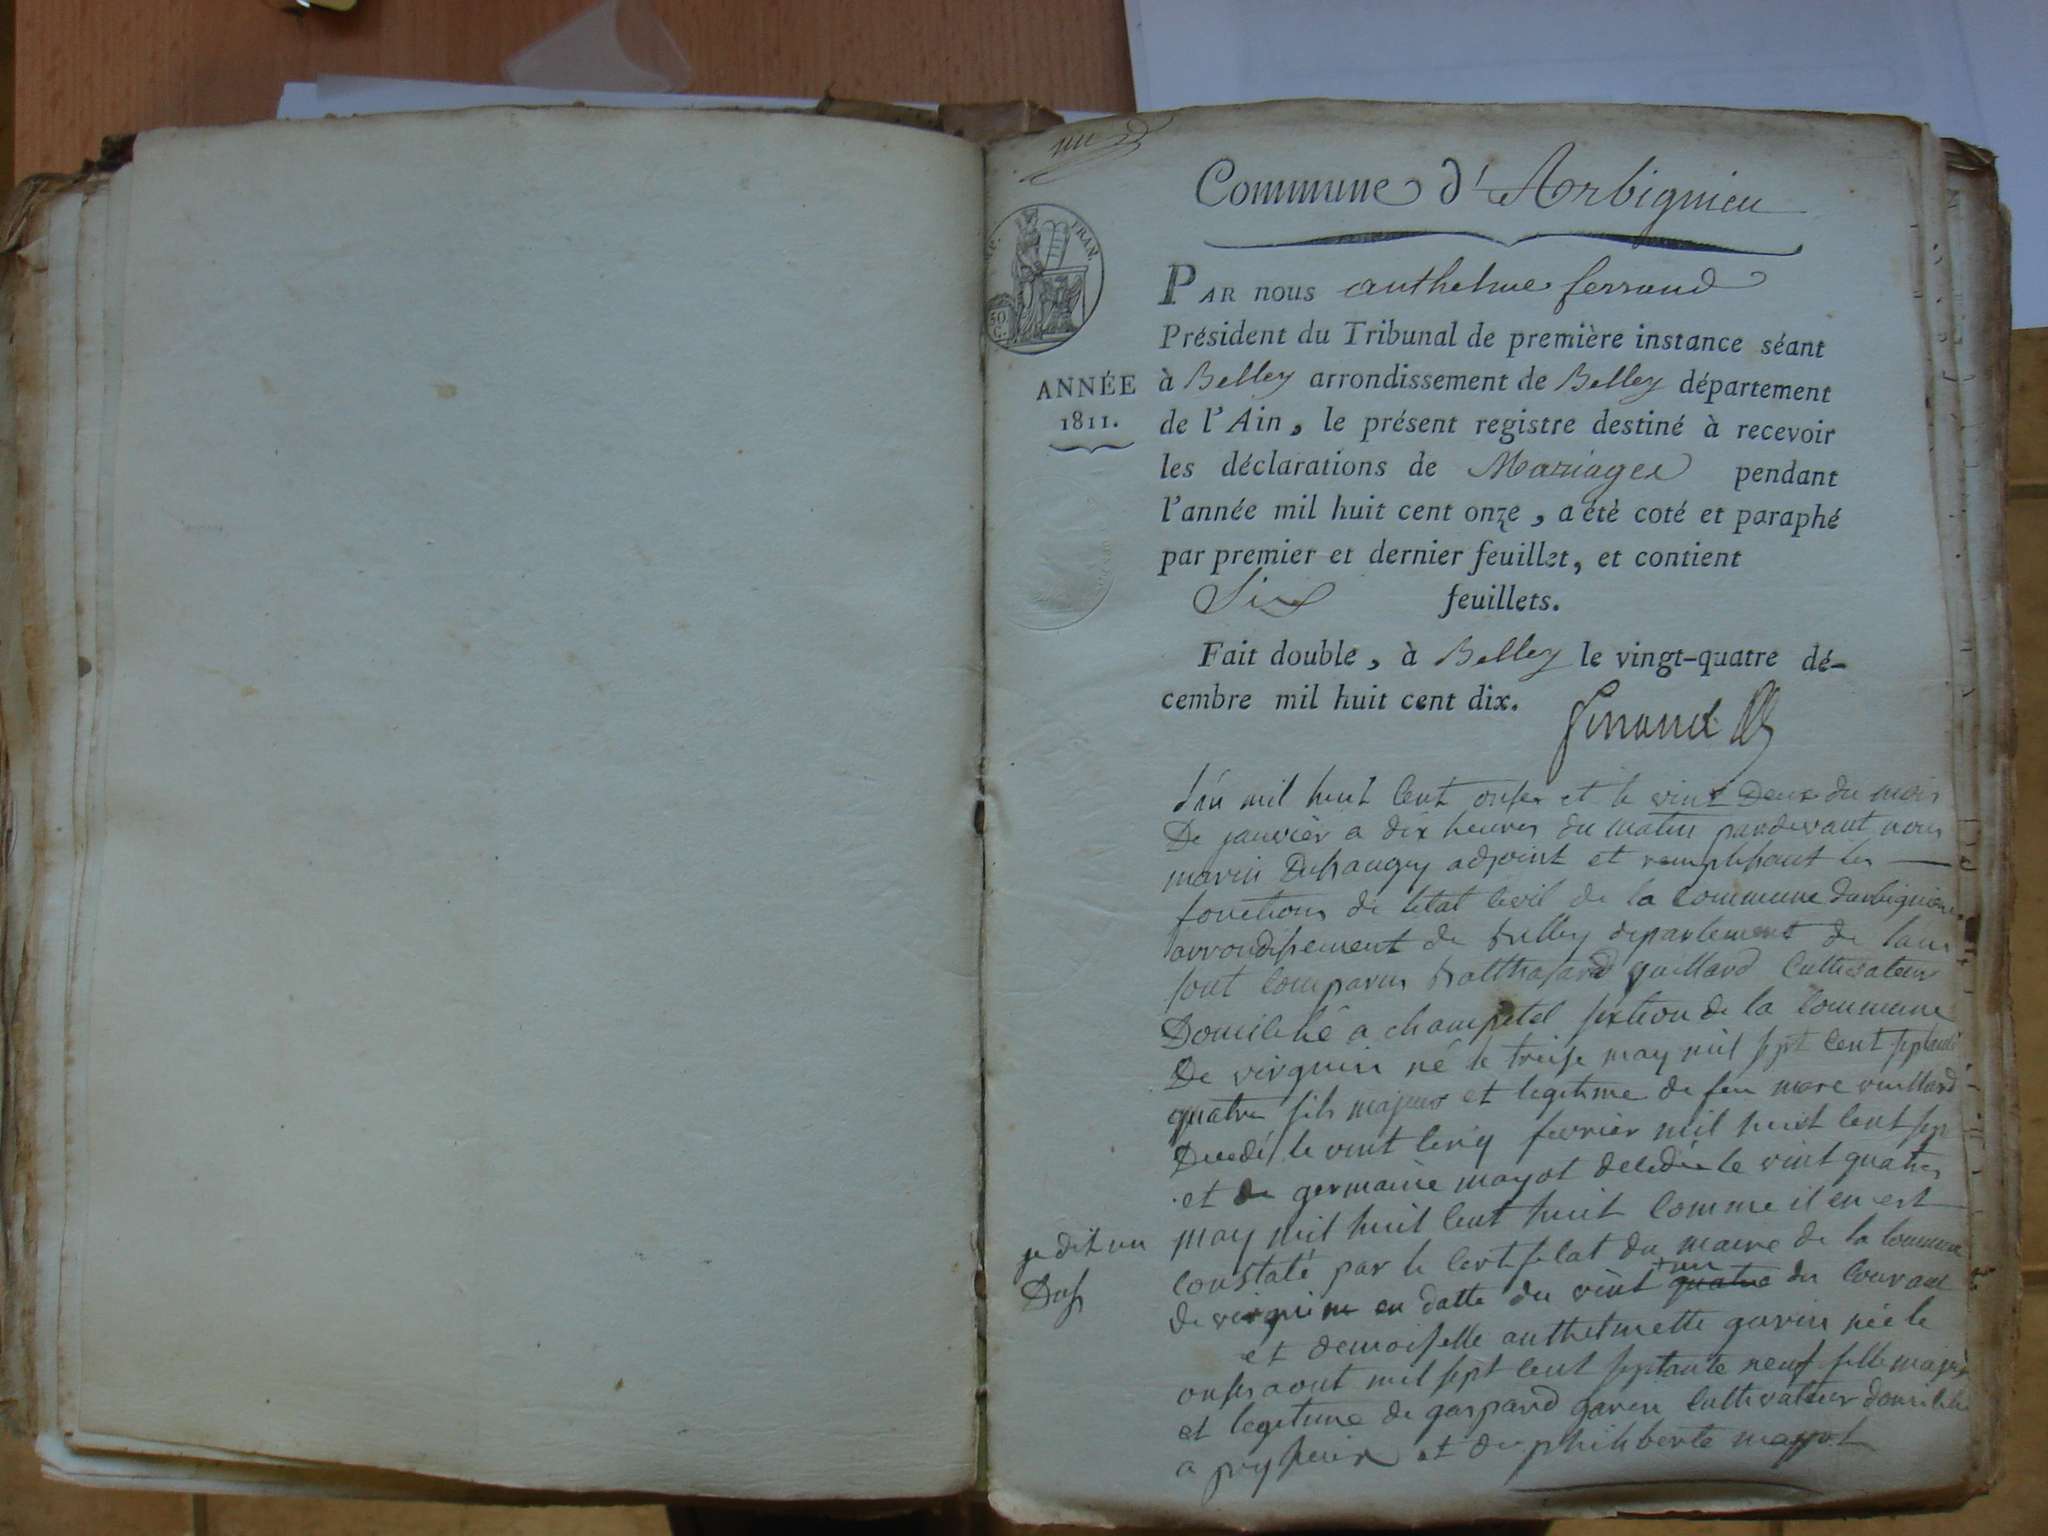 Commune d'Arbignieu
FRAN.
50
C.
ANNÉE
1811.
PAR nous anthelme ferrand
Président du Tribunal de première instance séant
à Belley arrondissement de Belley département
de l'Ain, le présent registre destiné à recevoir
les déclarations de Mariages pendant
l'année mil huit cent onze, a été coté et paraphé
par premier et dernier feuillet, et contient
Six feuillets.
Fait double, à Belley le vingt-quatre dé-
cembre mil huit cent dix.
ferrand
L'an mil huit cent onse et le vint deux du mois
De janvier a dix heures du matin pardevant nous
marin adjoint et remplissant les
fonctions de letat civil de la commune darbignieu
arrondissement de belley departement de lain
sont comparus balthasard vuillard cultivateur
Domicilié a champtel section de la commune
De virignin né le treise may mil sept cent septante
quatre fils majeur et legitime de feu marc vuillard
Decedé le vint cinq fevrier mil huit cent sep
et de germaine mayot decedée le vint quatre
may mil huit cent huit comme il en est
constaté par le certificat du maire de la commune
de virignin en datte du vint quatre un du courant
je dit un
et demoiselle anthelmette gavin née le
onse aout mil sept cent septante neuf fille majeure
et legitime de gaspard gavin cultivateur domicilié
a et de philiberte mayot